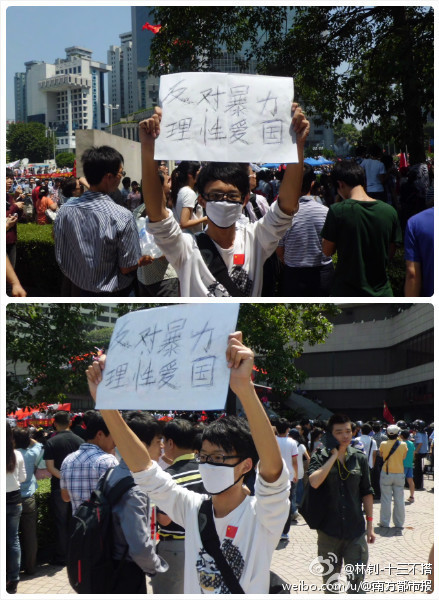 反对暴力
理性爱国
反对暴力
理性爱国
@林钊-十三不搭
weibo.com/u/@南方都市报